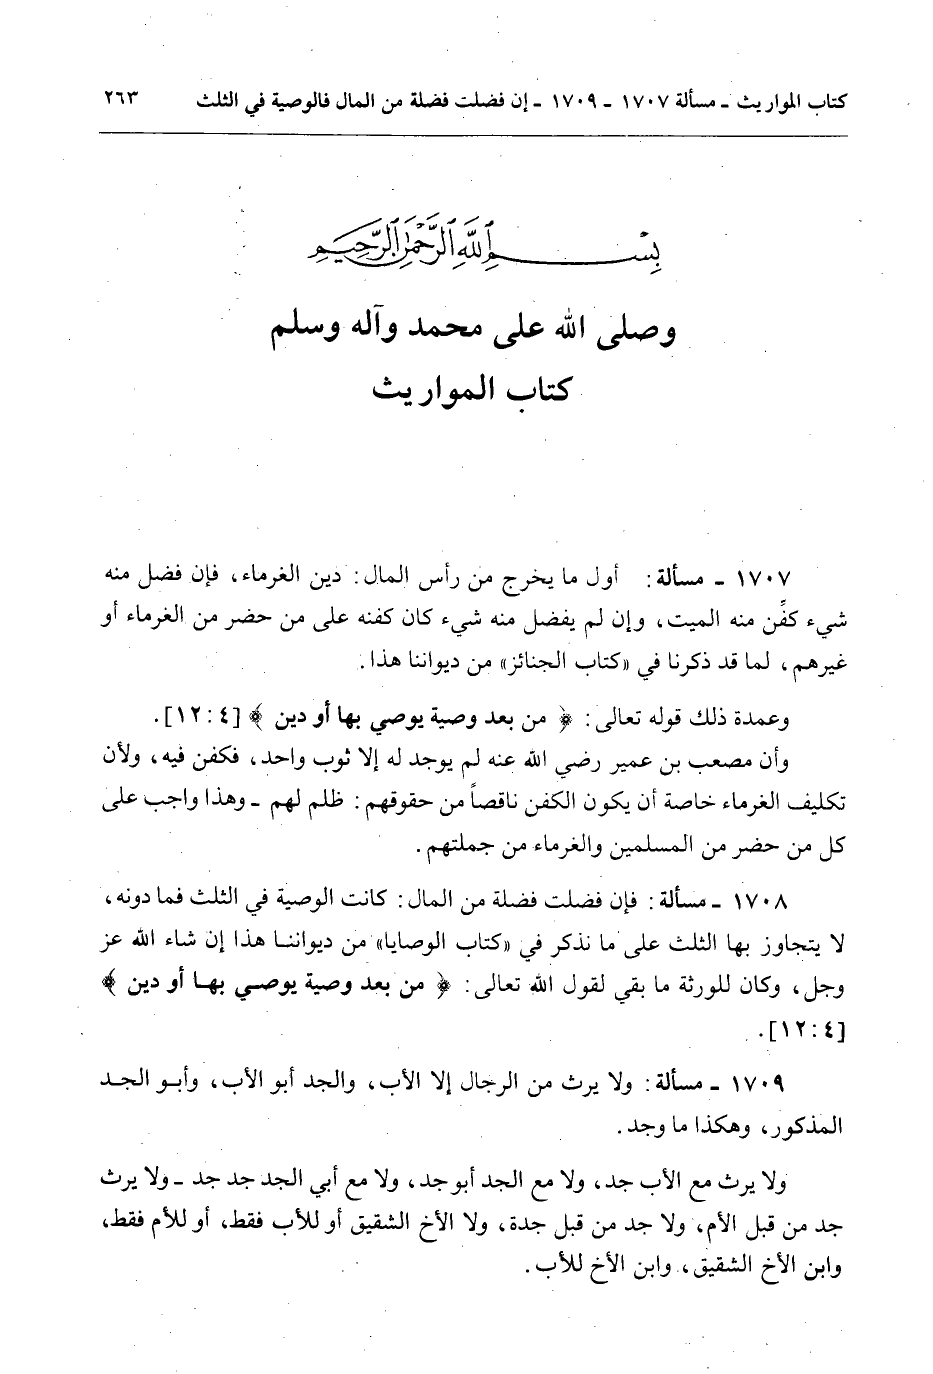 كتاب المواريث ـ مسألة ١٧٠٧ ـ ١٧٠٩ ـ إن فضلت فضلة من المال فالوصية في الثلث ٢٦٣
بسم الله الرحمن الرحيم
وصلى الله على محمد وآله وسلم
كتاب المواريث
١٧٠٧ ـ مسألة: أول ما يخرج من رأس المال: دين الغرماء، فإن فضل منه
شيء كفِّن منه الميت، وإن لم يفضل منه شيء كان كفنه على من حضر من الغرماء أو
غيرهم، لما قد ذكرنا في «كتاب الجنائز» من ديواننا هذا.
وعمدة ذلك قوله تعالى: ﴿ من بعد وصية يوصي بها أو دين ﴾ [٤ : ١٢].
وأن مصعب بن عمير رضي الله عنه لم يوجد له إلا ثوب واحد، فكفن فيه، ولأن
تكليف الغرماء خاصة أن يكون الكفن ناقصاً من حقوقهم: ظلم لهم ـ وهذا واجب على
كل من حضر من المسلمين والغرماء من جملتهم.
١٧٠٨ ـ مسألة: فإن فضلت فضلة من المال: كانت الوصية في الثلث فما دونه،
لا يتجاوز بها الثلث على ما نذكر في «كتاب الوصايا» من ديواننا هذا إن شاء الله عز
وجل، وكان للورثة ما بقي لقول الله تعالى: ﴿ من بعد وصية يوصي بها أو دين ﴾
[٤ : ١٢].
١٧٠٩ ـ مسألة: ولا يرث من الرجال إلا الأب، والجد أبو الأب، وأبو الجد
المذكور، وهكذا ما وجد.
ولا يرث مع الأب جد، ولا مع الجد أبو جد، ولا مع أبي الجد جد جد ـ ولا يرث
جد من قبل الأم، ولا جد من قبل جدة، ولا الأخ الشقيق أو للأب فقط، أو للأم فقط،
وابن الأخ الشقيق، وابن الأخ للأب.